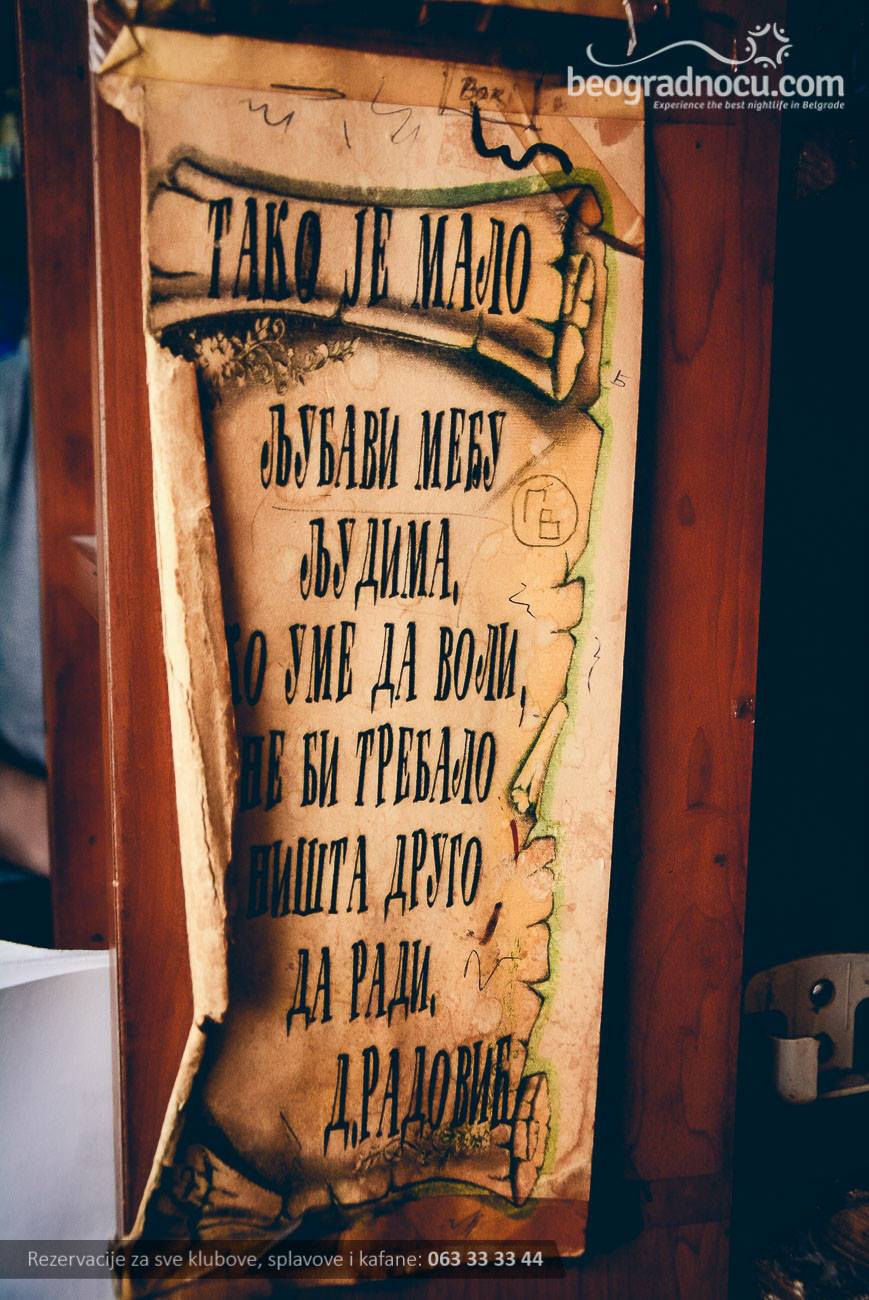 beogradnocu.com
Experience the best nightlife in Belgrade
ТАКО ЈЕ МАЛО
ЉУБАВИ МЕЂУ
ЉУДИМА,
КО УМЕ ДА ВОЛИ,
НЕ БИ ТРЕБАЛО
НИШТА ДРУГО
ДА РАДИ,
Д.РАДОВИЋ
Rezervacije za sve klubove, splavove i kafane: 063 33 33 44